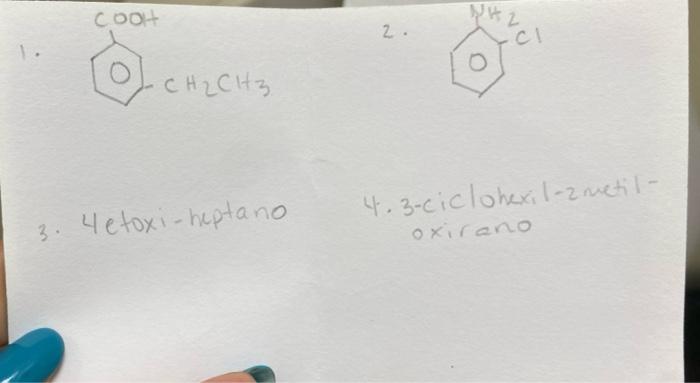 1.
COOH
CH2CH3
2.
NH2
Cl
3. 4etoxi-heptano
4. 3-ciclohexil-2metil-
oxirano